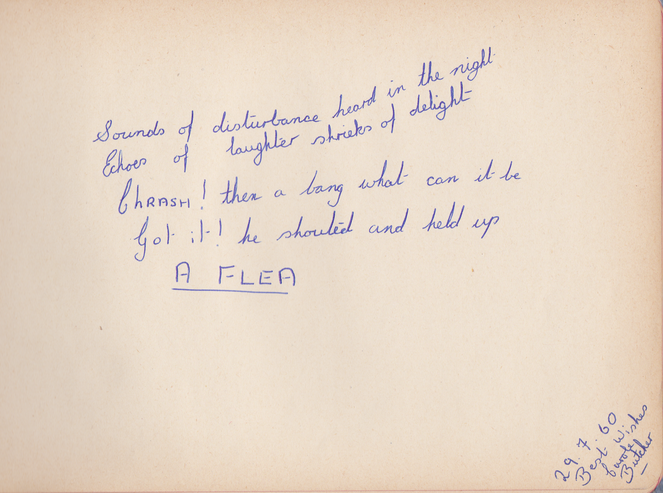 Sounds of disturbance heard in the night
Echoes of laughter shrieks of delight
ChRASH! then a bang what can it be
Got it! he shouted and held up
A FLEA
29.7.60
Best Wishes
Carole
Butcher